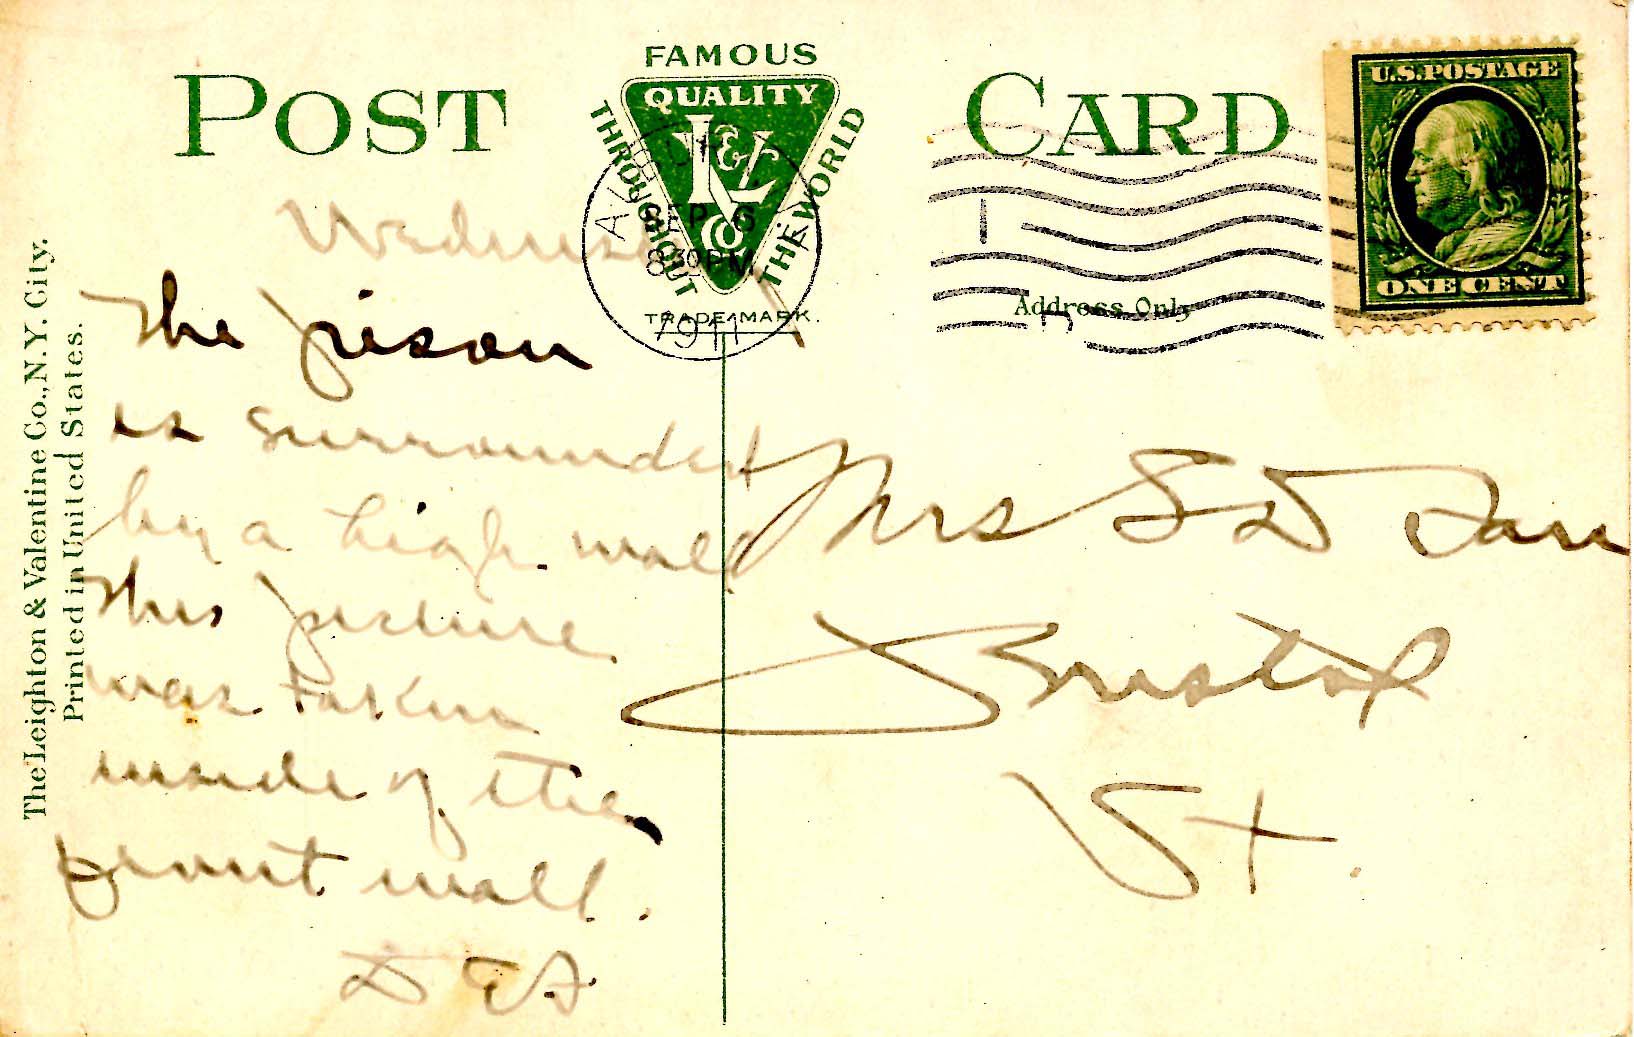 POST CARD
FAMOUS
QUALITY
THROUGHOUT
THE WORLD
L & V Co
TRADE MARK.
AUBURN
SEP 6
8 30 PM
N.Y.
1911
U.S. POSTAGE
ONE CENT
Address Only
The Leighton & Valentine Co., N.Y. City.
Printed in United States.
Wednesday
The prison
is surrounded
by a high wall
this picture
was taken
inside of the
front wall.
Mrs E D
Bristol
Vt.